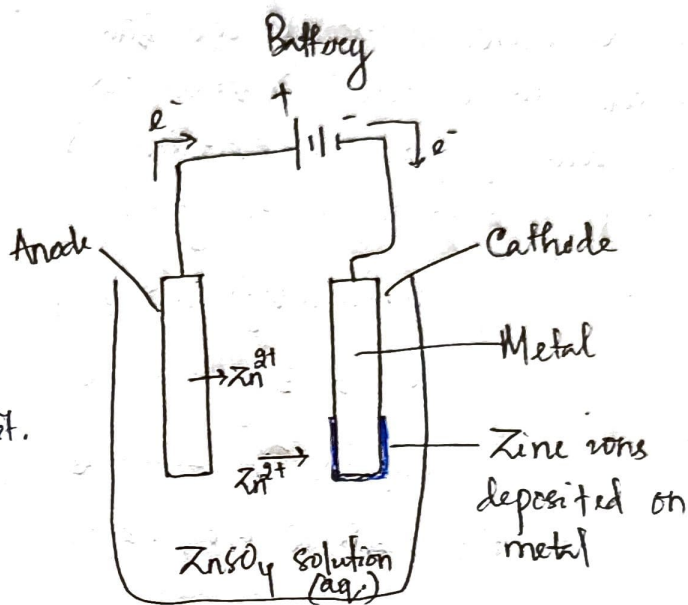 Battery
+ -
e⁻ e⁻
Anode
Cathode
Metal
Zn²⁺
Zn²⁺
Zinc ions
deposited on
metal
ZnSO₄ solution
(aq.)